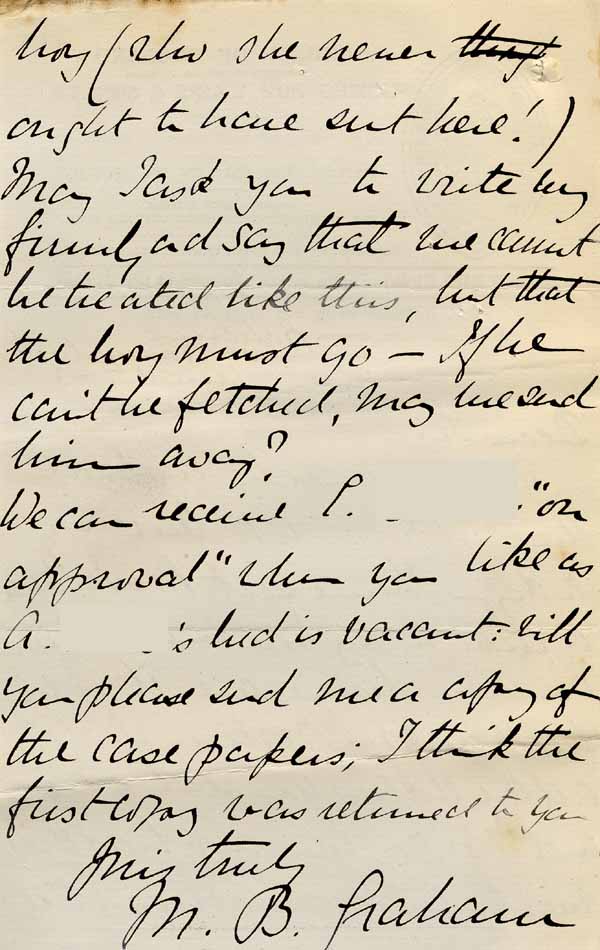 boy (who she never
ought to have sent here!)
May I ask you to write very
firmly and say that we cannot
be treated like this, but that
the boy must go – If he
can't be fetched, may we send
him away?
We can receive P. "on
approval" when you like as
A. 's bed is vacant: will
you please send me a copy of
the case papers; I think the
first copy was returned to you
Yours truly
M. B. Graham